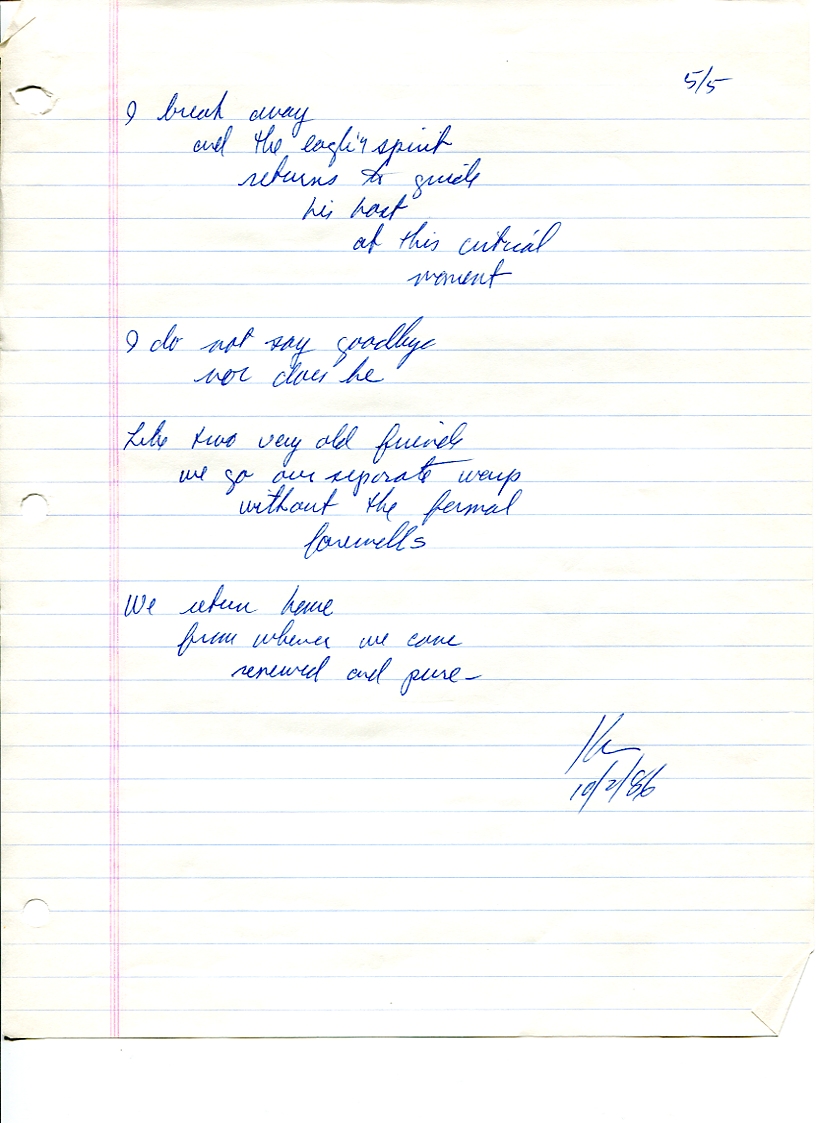 5/5
I break away
and the eagle's spirit
returns to guide
his host
at this critical
moment
I do not say goodbye
nor does he
Like two very old friends
we go our separate ways
without the formal
farewells
We return home
from whence we came
renewed and pure—
10/2/86